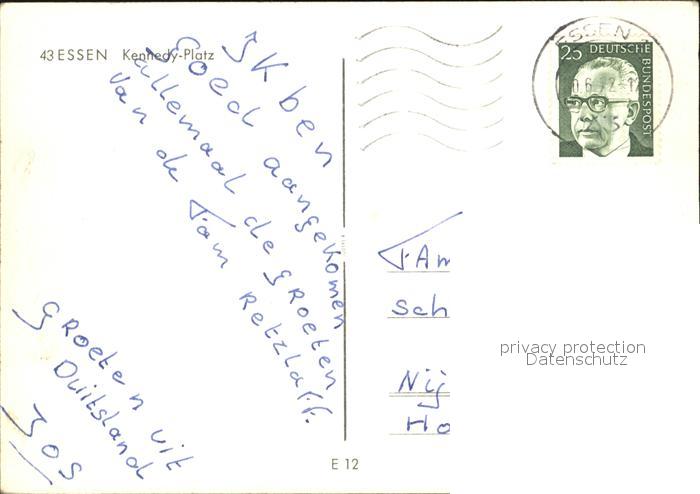 43 ESSEN Kennedy-Platz
Ik ben
Goed aangekomen
allemaal de GRoeten
van de Fam Retzlaff.
GRoeten uit
Duitsland
Jos
E 12
ESSEN
25 DEUTSCHE
BUNDESPOST
FAm
Sch
Nij
Ho
privacy protection
Datenschutz